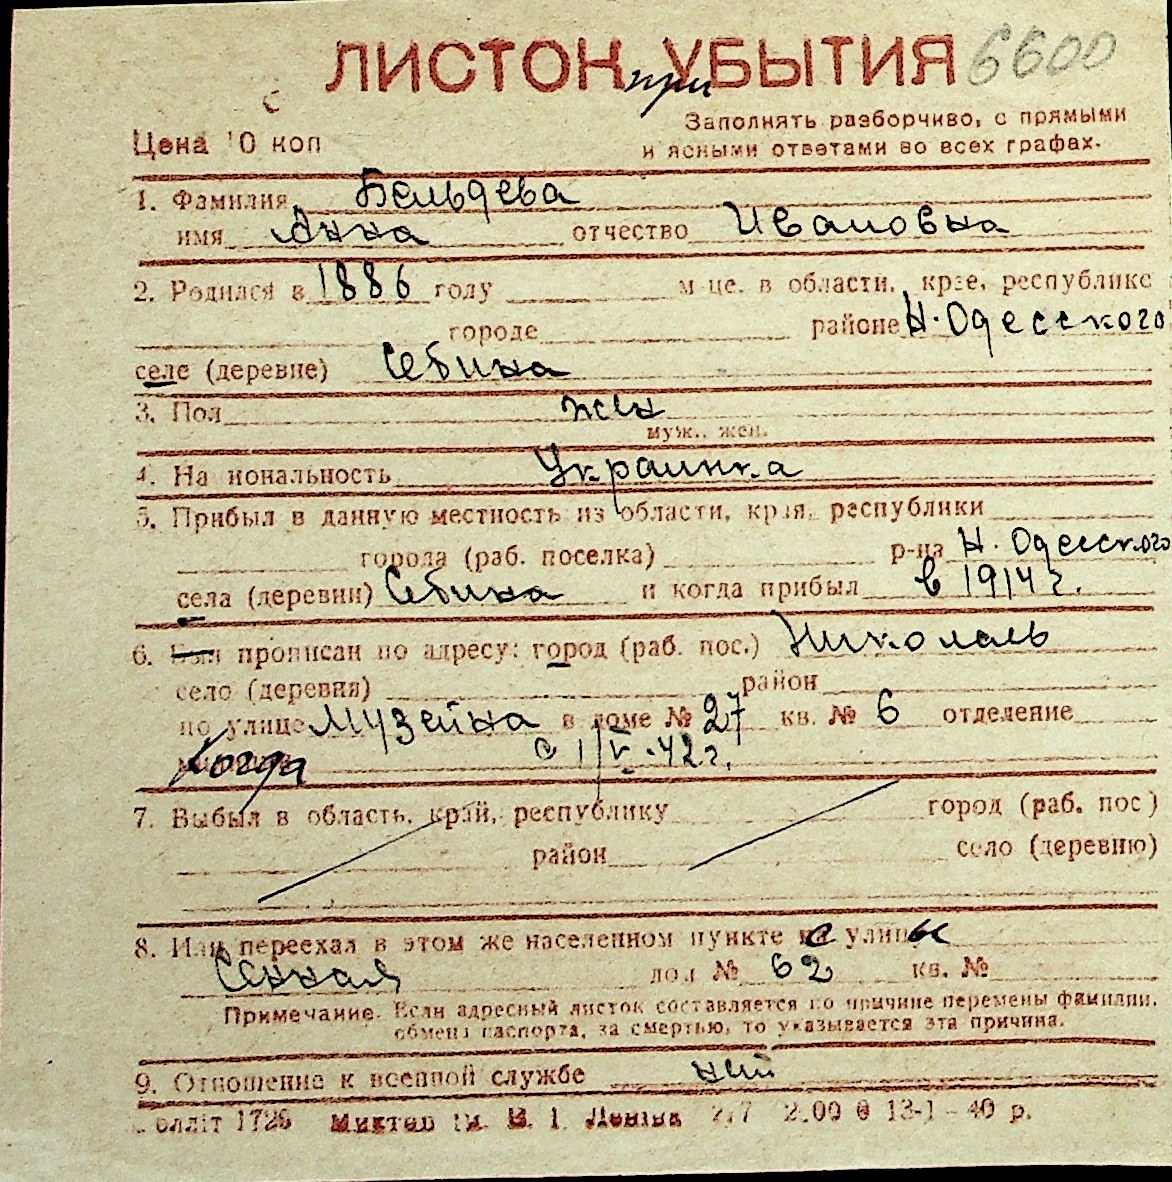 ЛИСТОК при УБЫТИЯ 6600
с
Заполнять разборчиво, с прямыми
Цена 10 коп
и ясными ответами во всех графах.
1. Фамилия Бельдева
имя Анна отчество Ивановна
2. Родился в 1886 году м-це, в области, крае, республике
городе районе Н. Одесского
селе (деревне) Себина
3. Пол жен
муж., жен.
4. Национальность Украинка
5. Прибыл в данную местность из области, края, республики
города (раб. поселка) р-на Н. Одесского
села (деревни) Себина и когда прибыл в 1914 г.
6. Был прописан по адресу: город (раб. пос.) Николаев
село (деревня) район
по улице Музейна в доме № 27 кв. № 6 отделение
Когда с 1/V-42 г.
7. Выбыл в область, край, республику город (раб. пос)
район село (деревню)
8. Или переехал в этом же населенном пункте с улицы
Сенная дом № 62 кв. №
Примечание. Если адресный листок составляется по причине перемены фамилии,
обмена паспорта, за смертью, то указывается эта причина.
9. Отношение к военной службе нет
обллiт 1726 Миктер iм. В. I. Ленiна 2.00 0 13-1-40 р.